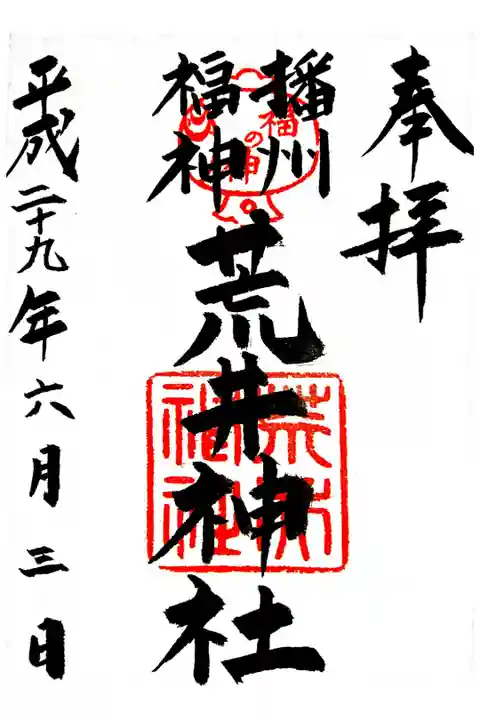 奉拝
播州
福神
福の神
荒井神社
荒井神社
平成二十九年六月三日